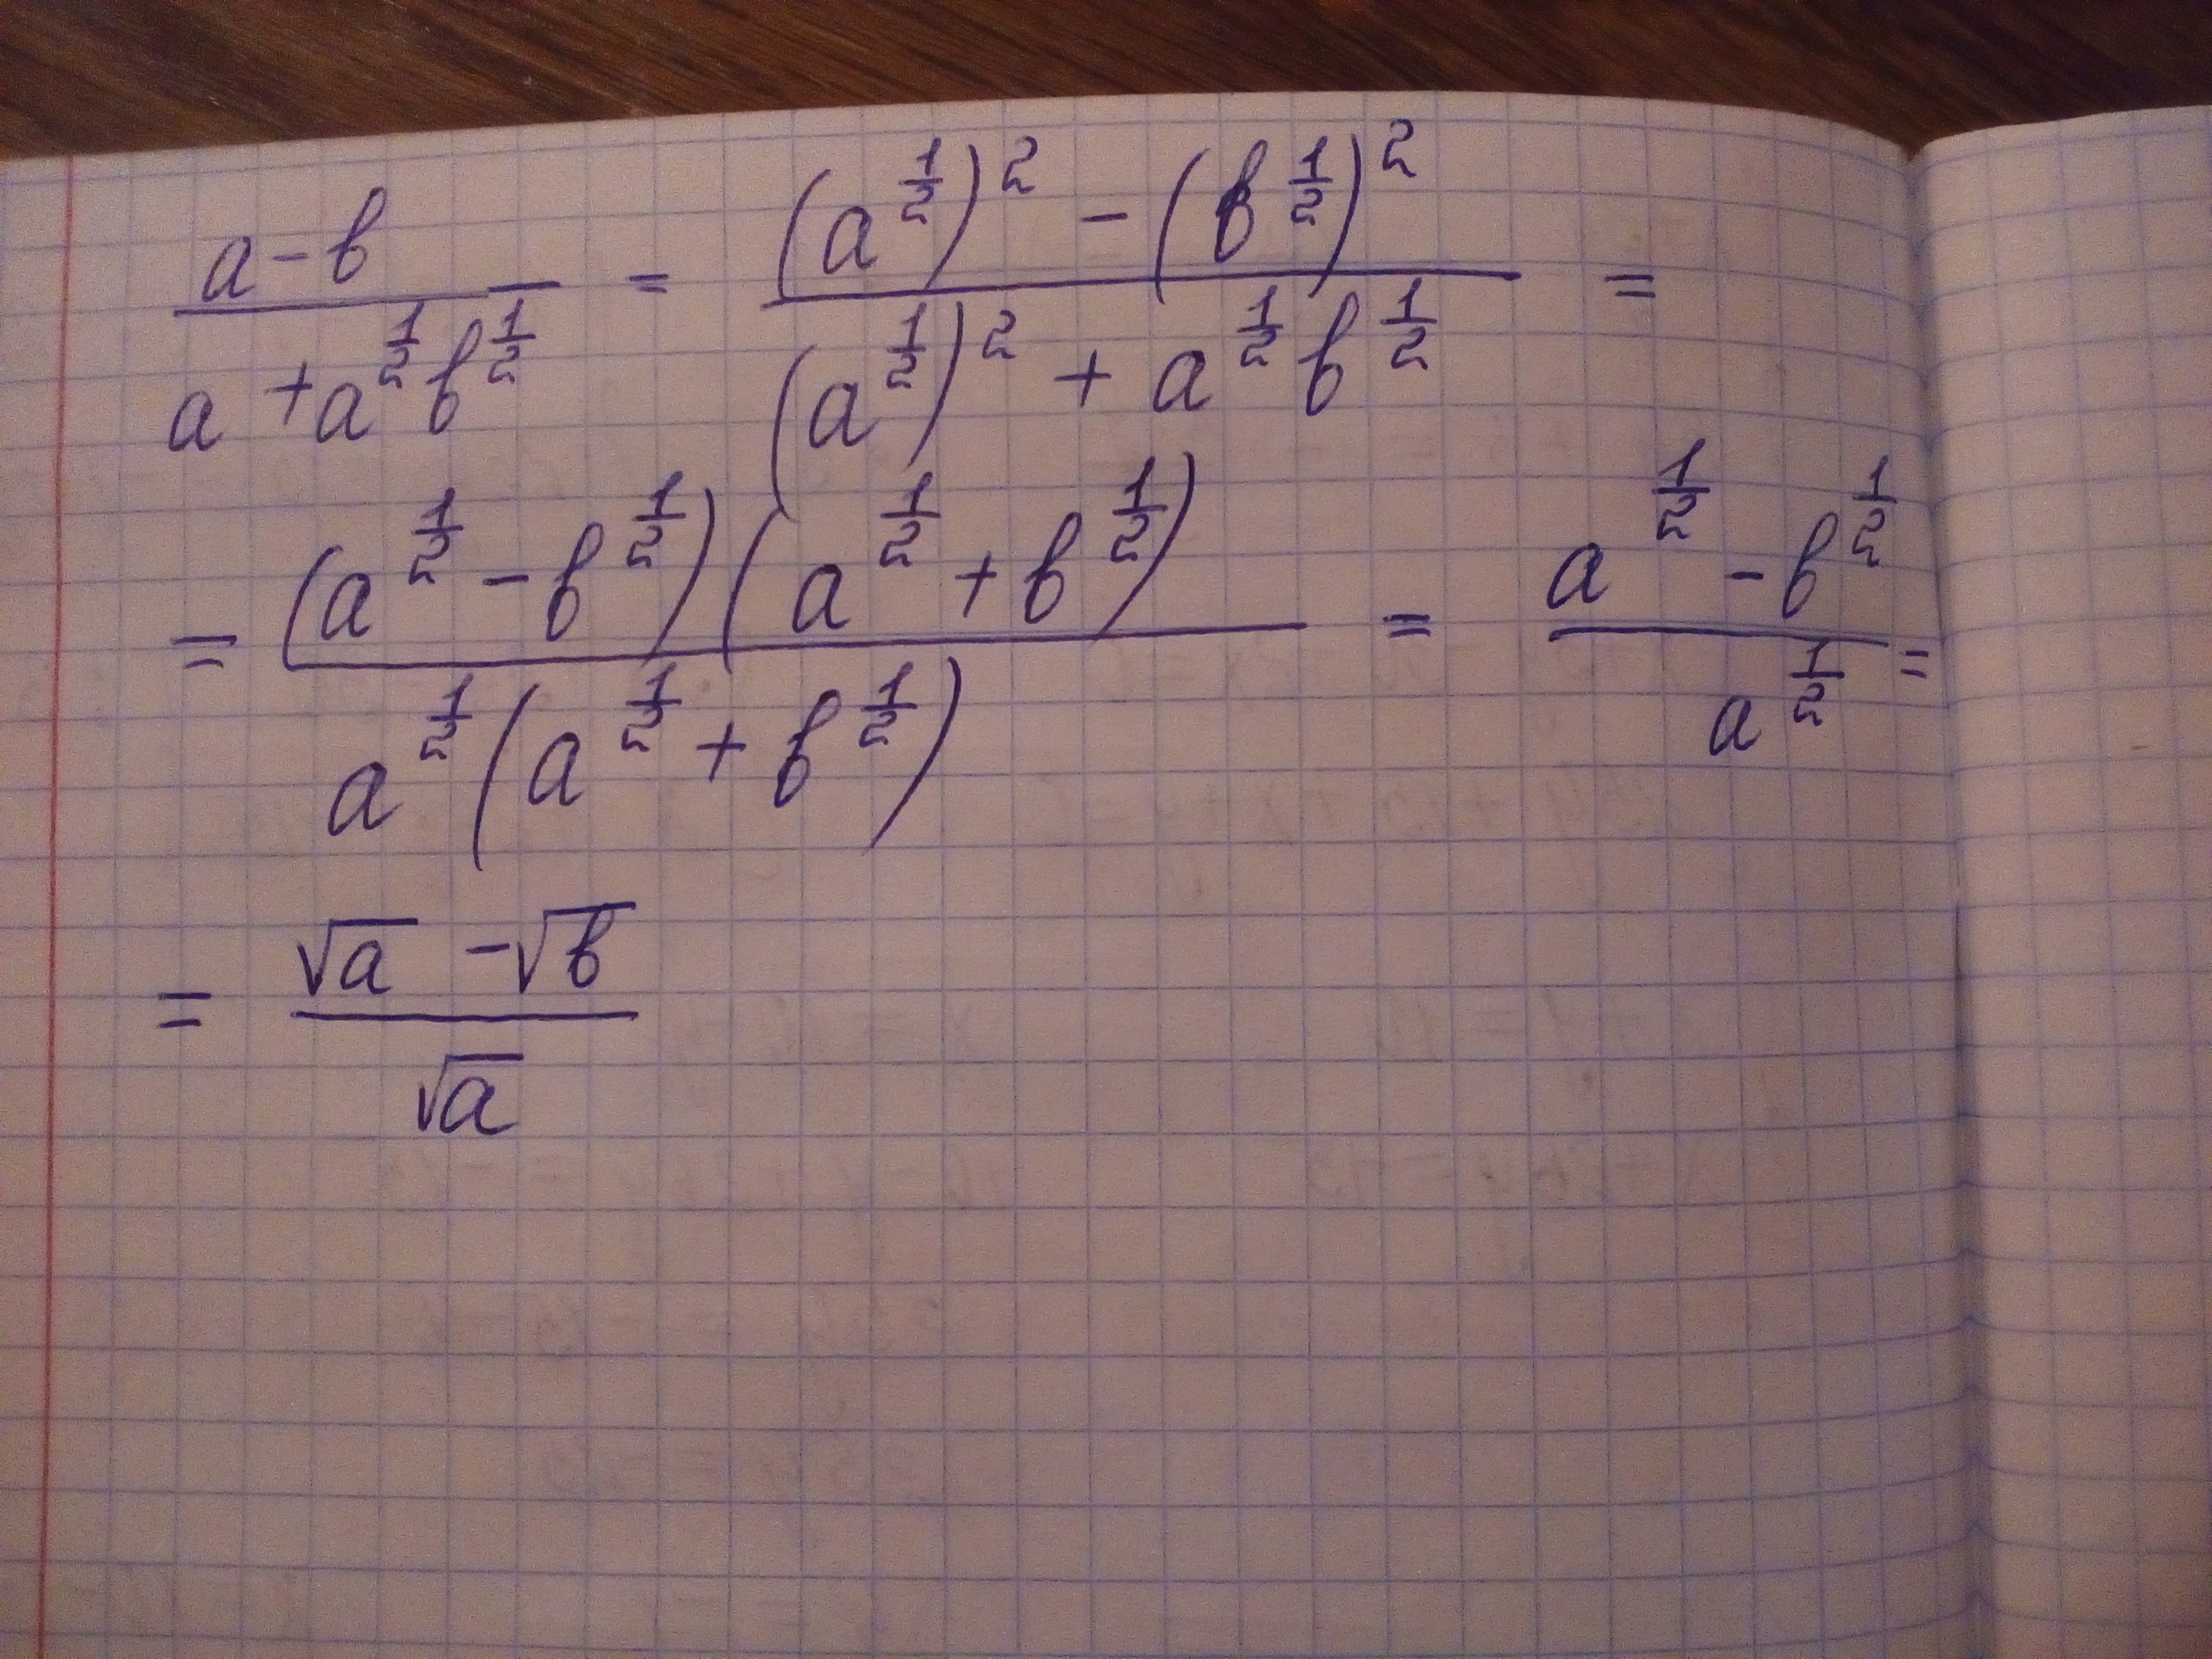 \frac{a-b}{a+a^{\frac{1}{2}}b^{\frac{1}{2}}} = \frac{(a^{\frac{1}{2}})^2-(b^{\frac{1}{2}})^2}{(a^{\frac{1}{2}})^2+a^{\frac{1}{2}}b^{\frac{1}{2}}} =
= \frac{(a^{\frac{1}{2}}-b^{\frac{1}{2}})(a^{\frac{1}{2}}+b^{\frac{1}{2}})}{a^{\frac{1}{2}}(a^{\frac{1}{2}}+b^{\frac{1}{2}})} = \frac{a^{\frac{1}{2}}-b^{\frac{1}{2}}}{a^{\frac{1}{2}}} =
= \frac{\sqrt{a}-\sqrt{b}}{\sqrt{a}}